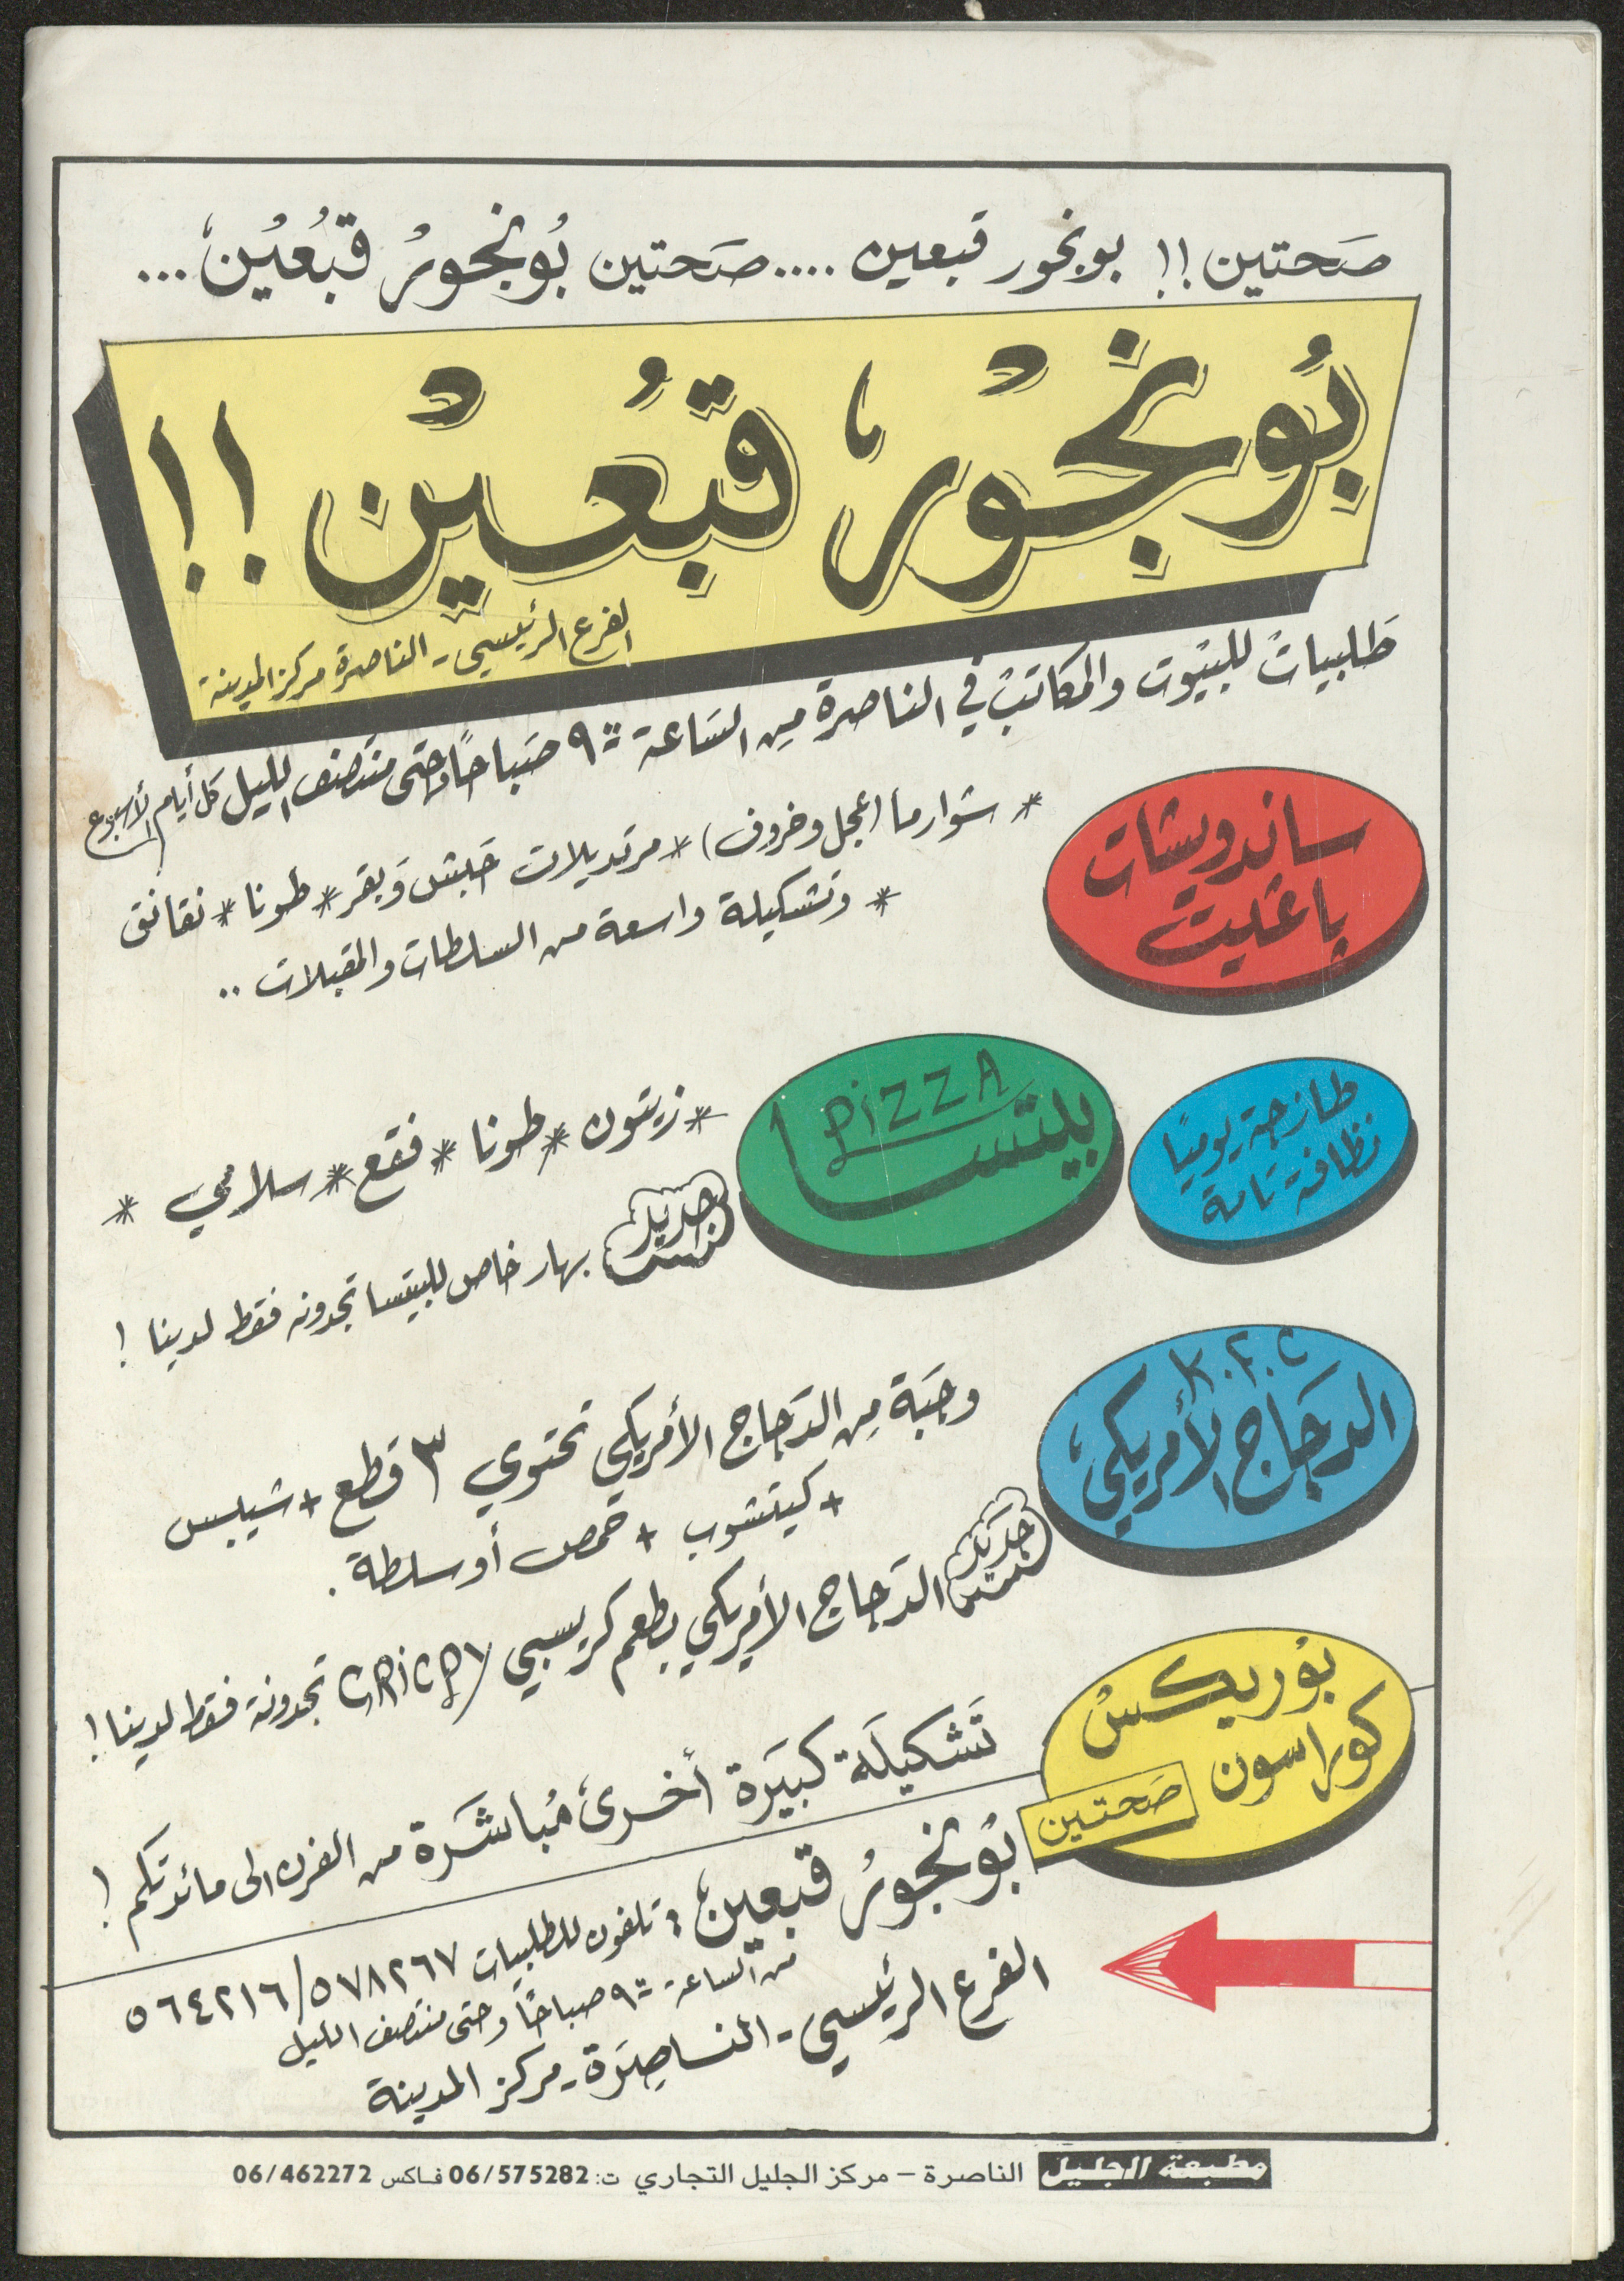 صَحتين !! بونجور قبعين .... صَحتين بُونجورُ قبُعيُن، ...
بُونجوْر، قبُعيْن !!
الفرع الرئيسي - الناصرة مركز المدينة
طَلبيات للبيوت والمكاتب في الناصرة مِن السَاعة ٩:٠٠ صَباحًا وحَتى منتَصف الليل كل أيام الأسبوع
ساندويشات
باغيت
* شوارما (عجل وخروف) * مرتديلات حَبش وَبقر * طونا * نقانق
* وتشكيلة واسعة من السلطات والمقبلات ..
طازجة يوميًا
نظافة تامة
PIZZA
بيتسا
* زيتون * طونا * فقع * سلامي *
جديد
بهار خاص للبيتسا تجدونه فقط لدينا !
K.F.C
الدجَاج الأمريكي،
وجَبَة مِن الدَجاج الأمريكي تحتوي ٣ قطع + شيبس
+ كيتشوب + حمص أو سلطة .
جَديد
الدَجاج الأمريكي بطعم كريسبي CRiCPY تجدونة فقط لدينا !
بوُريكسْ
كوراسون
تَشكيلَة كبيَرة أخرى، مُباشَرة من الفرن الى مائدتكم !
صَحتين
بُونجورُ قبعين، : تلفون للطلبيات ٥٧٨٢٦٧/٥٦٤٢١٦
من الساعة ٩:٠٠ صباحًا وحتى منتصف الليل
الفرع الرئيسي - الناصِرَة - مركز المدينة
مطبعة الجليل الناصرة – مركز الجليل التجاري ت: 06/575282 فاكس 06/462272